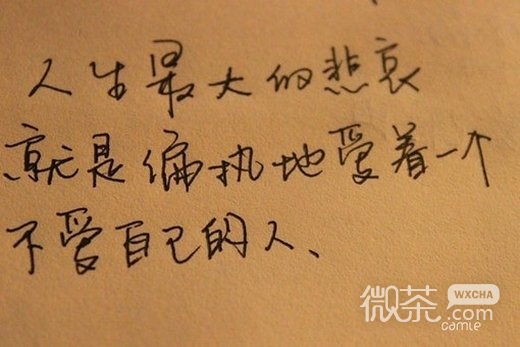 人生最大的悲哀
就是偏执地爱着一个
不爱自己的人、
微茶 WXCHA
.com
camle